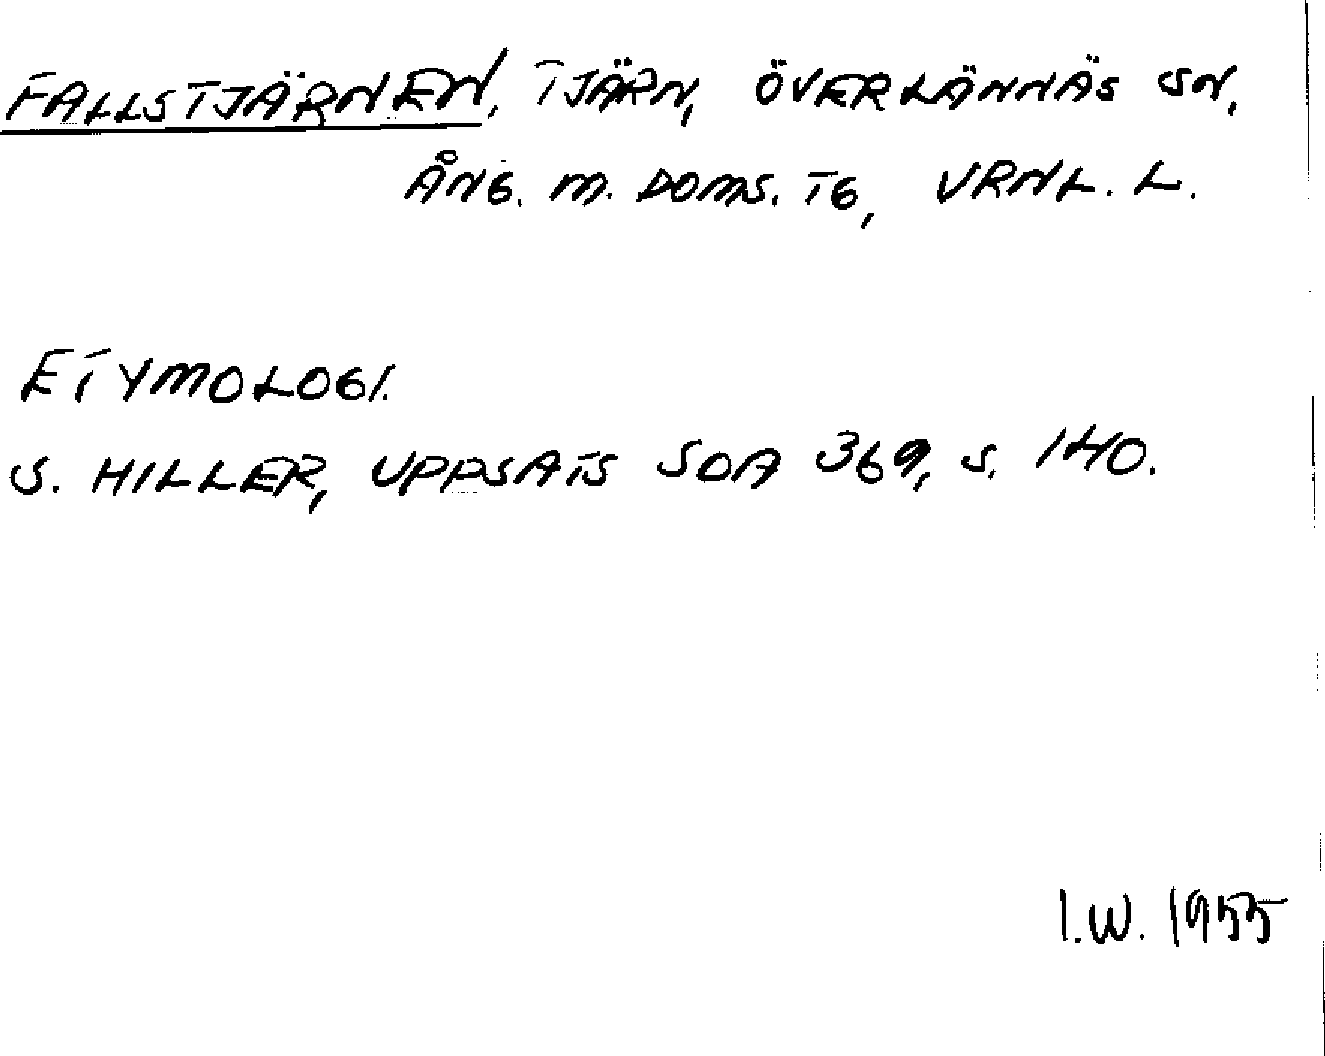 FALLSTJÄRNEN, TJÄRN, ÖVERLÄNNÄS SN,
ÅNG. M. DOMS. TG, VRNL. L.
ETYMOLOGI.
S. HILLER, UPPSATS SOA 369, S. 140.
I.W. 1955